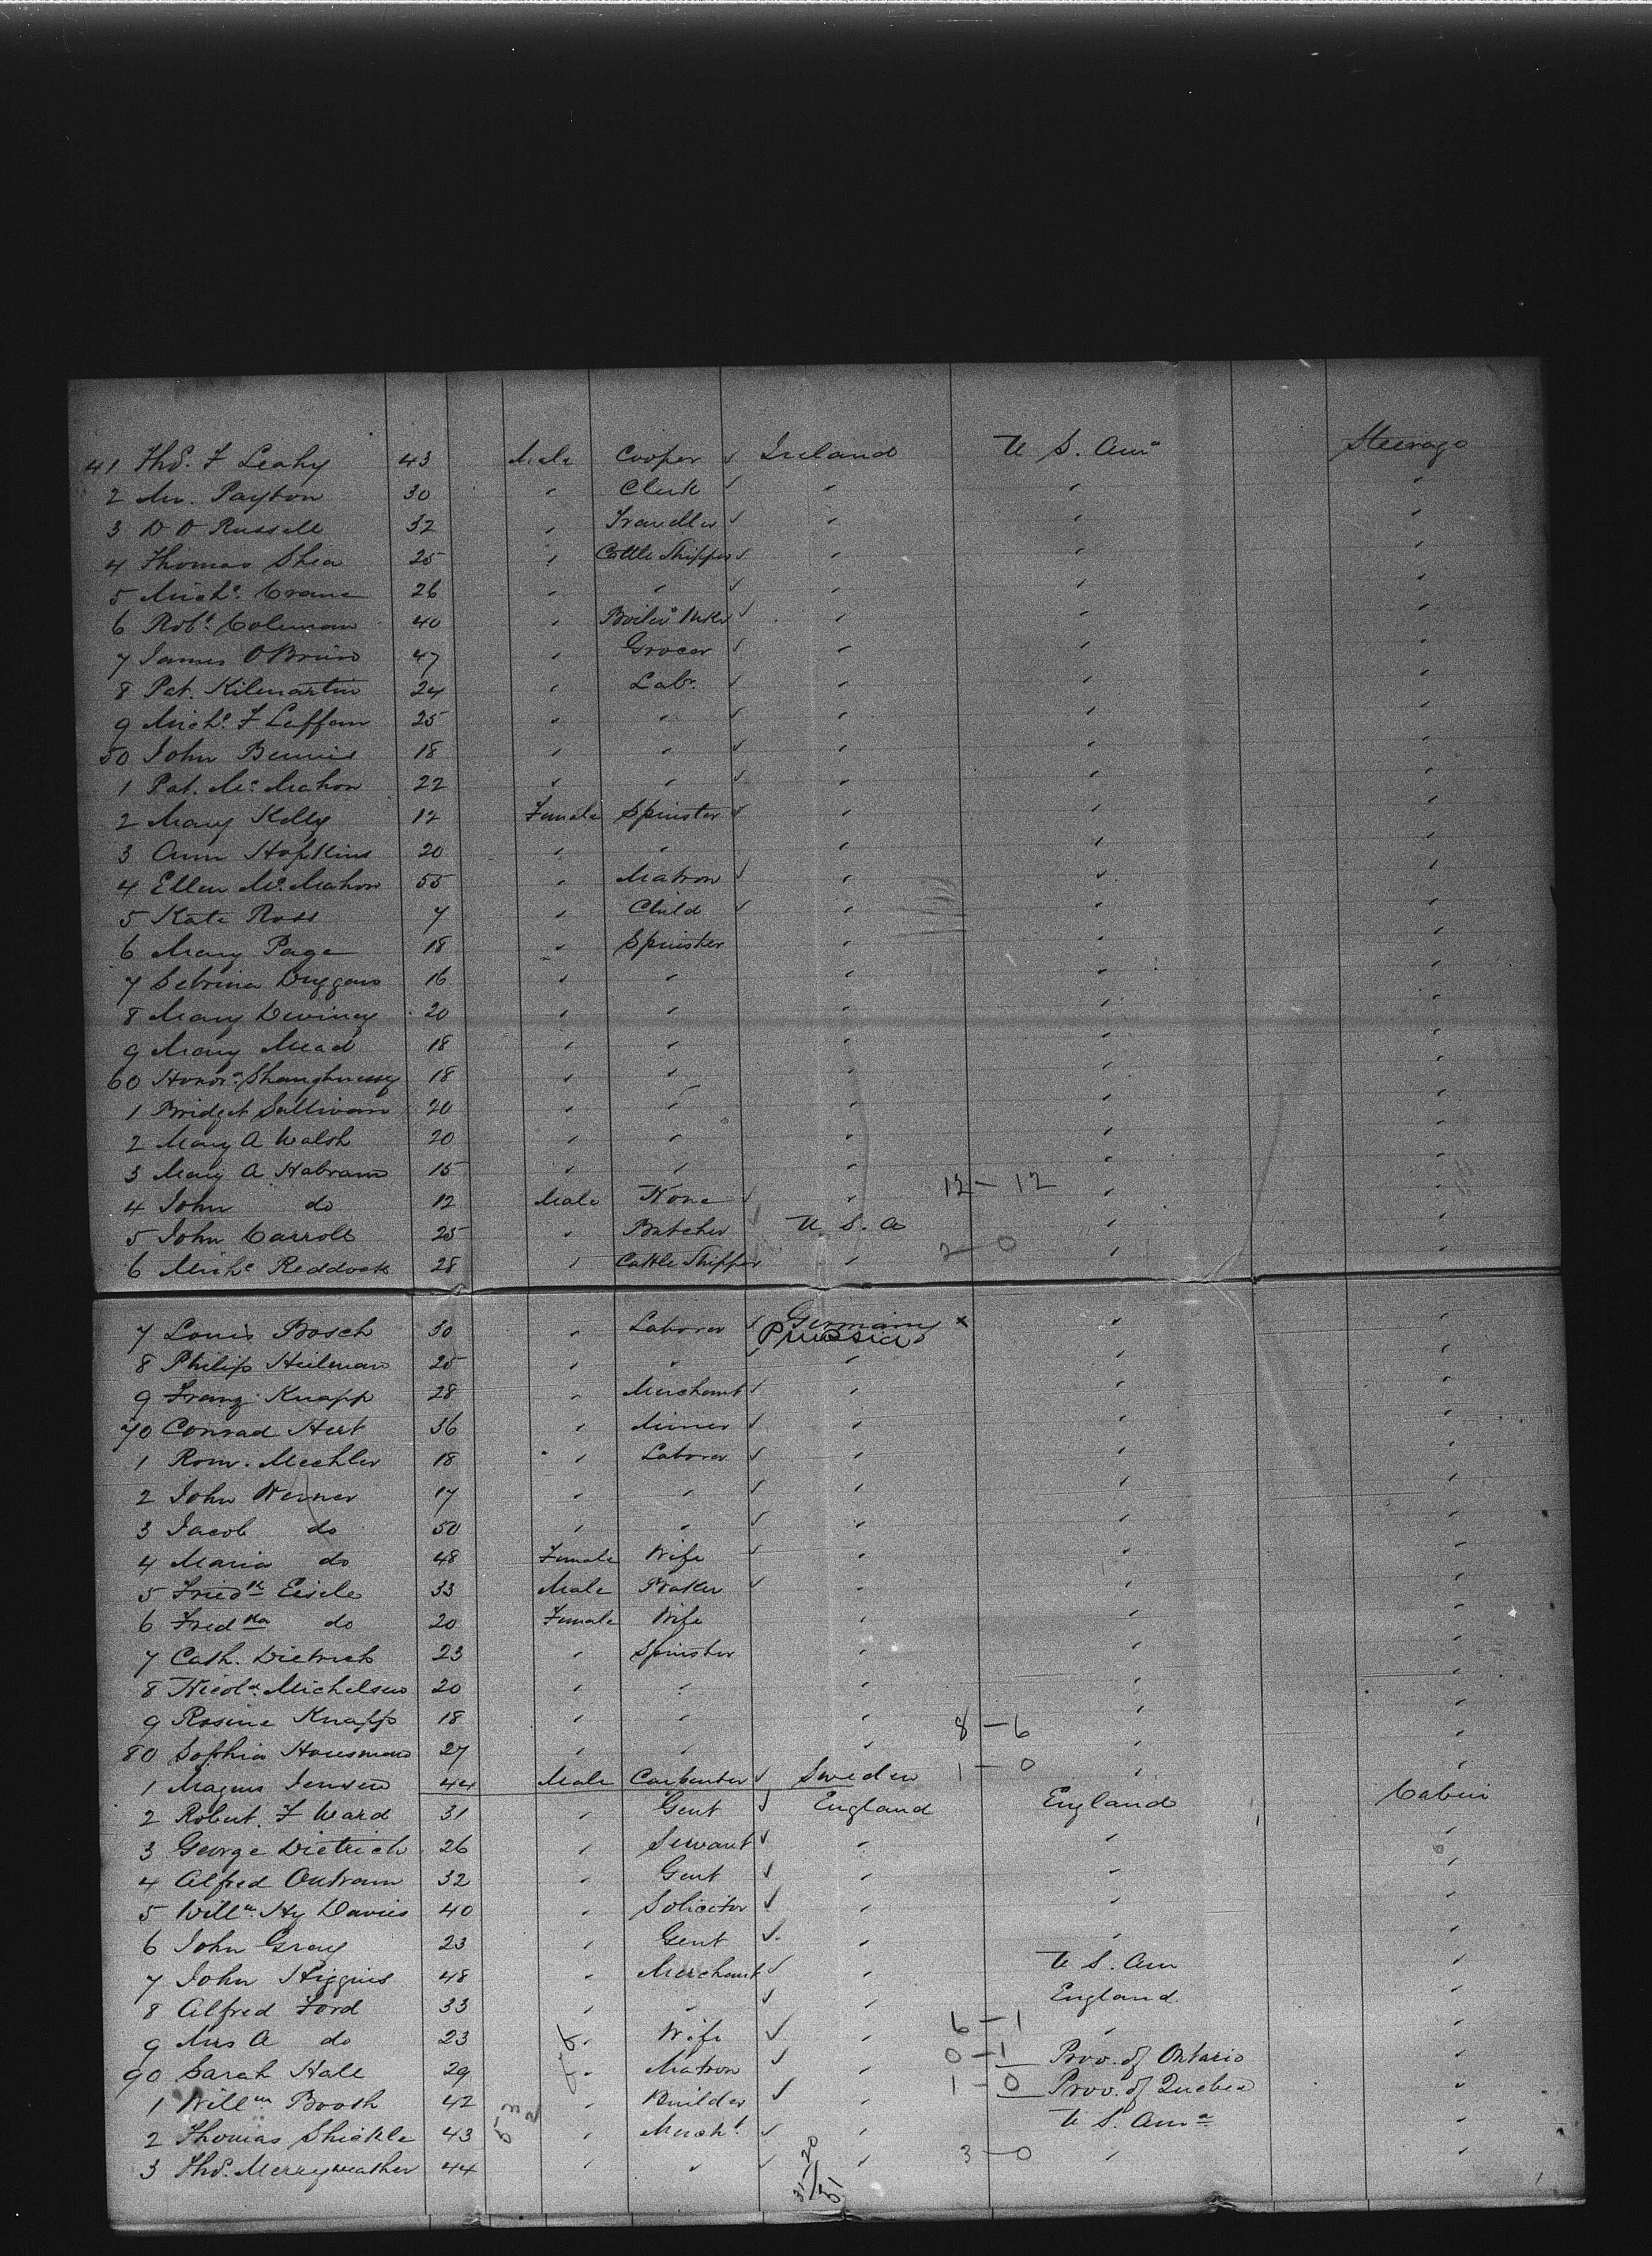 41 Thos. F Leahy 43 Male Cooper √ Ireland U S. Ama Steerage
2 Payton 30 " Clerk √ " " "
3 D O Russell 32 " Traveller √ " " "
4 Thomas Shea 25 " Cattle Shipper √ " " "
5 Michl. Crane 26 " " √ " " "
6 Robt. Coleman 40 " Boiler Mkr √ " " "
7 James O'Brien 47 " Grocer √ " " "
8 Pat. Kilmartin 24 " Labr. √ " " "
9 Michl. F Leffan 25 " " √ " " "
50 John 18 " " √ " " "
1 Pat. McMahon 22 " " √ " " "
2 Mary Kelly 12 Female Spinster √ " " "
3 Ann Hopkins 20 " " " " "
4 Ellen McMahon 55 " Matron √ " " "
5 Kate Ross 7 " Child √ " " "
6 Mary Page 18 " Spinster " " "
7 Duggan 16 " " " " "
8 Mary Deviney 20 " " " " "
9 Mary Mead 18 " " " " "
60 Honora Shaughnessy 18 " " " " "
1 Bridget Sullivan 20 " " " " "
2 Mary A Walsh 20 " " " " "
3 Mary A Habram 15 " " " " "
4 John do 12 Male None √ " 12 - 12 " "
5 John Carroll 25 " Butcher √ U. S. A " "
6 Michl Reddock 28 " Cattle Shipper " 2 - 0 " "
7 Louis Bosch 30 " Laborer √ Germany x " "
Prussia
8 Philip Heilman 25 " " √ " " "
9 Franz Knapp 28 " Merchant √ " " "
70 Conrad 36 " Miner √ " " "
1 Rom. Mechler 18 " Laborer √ " " "
2 John Werner 17 " " √ " " "
3 Jacob do 50 " " √ " " "
4 Maria do 48 Female Wife √ " " "
5 Friedk Eisele 33 Male Baker √ " " "
6 Fredka do 20 Female Wife " " "
7 Cath. Dietrich 23 " Spinster " " "
8 Michelsen 20 " " " " "
9 Rosine Knapp 18 " " " 8 - 6 " "
80 Sophia Housman 27 " " " " "
1 Magnus Jensen 44 Male Carpenter √ Sweden 1 - 0 " "
2 Robert. F Ward 31 " Gent √ England England Cabin
3 George Dietrich 26 " Servant √ " " "
4 Alfred Outram 32 " Gent √ " " "
5 Willm. Hy Davies 40 " Solicitor √ " " "
6 John Gray 23 " Gent √ " " "
7 John Higgins 48 " Merchant √ " U S. Am "
8 Alfred Ford 33 " " √ " England "
9 Mrs A do 23 f " Wife √ " 6 - 1 " "
90 Sarah Hall 29 f " Matron √ " 0 - 1 Prov. of Ontario "
1 Willm Booth 42 " Builder √ " 1 - 0 Prov. of Quebec "
2 Thomas Shickle 43 " Mercht. √ " U S. Ama "
3 Thos. Merryweather 44 " " √ " 3 - 0 " "
31 - 20
51